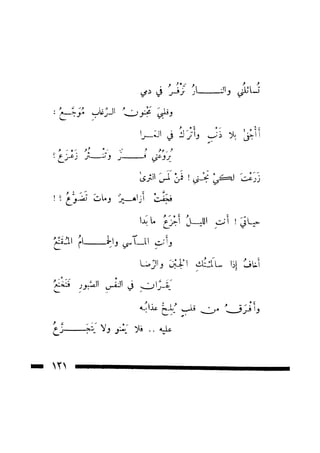 تُسائلُني والنــارُ تَزْفِرُ في دمي
وقلبيَ مجنونُ الرَّغابِ مُوَجَّعُ :
أَأُجْنَى بلا ذَنْبٍ وأُتْرَكُ في العَرا
يُرَوِّعُني قُــرٌّ وتَنْــثُرُ زَعْزَعُ ؟
زَرَعْتَ لكيْ تجْني ! فَمَنْ لَمسَ الثرىٰ
فجَفَّتْ أزاهــيرٌ وماتَ تَضَوُّعُ ! !
حيــاتيَ ! أنتِ الليــلُ أَجْزَعُ مابَدا
وأنتِ المــآسي والحِمــامُ المُقنَّعُ
أخافُ إذا ساءلتُكِ الحَيْنَ والرِّضــا
يَقــرّانِ في النفْسِ الصَّبورِ فَتَخْنَعُ
وأَفْرَقُ من قلبٍ يُلِحُّ عذابُه
عليه .. فلا يَعْنو ولا يَتَجَــزَّعُ
١٢١